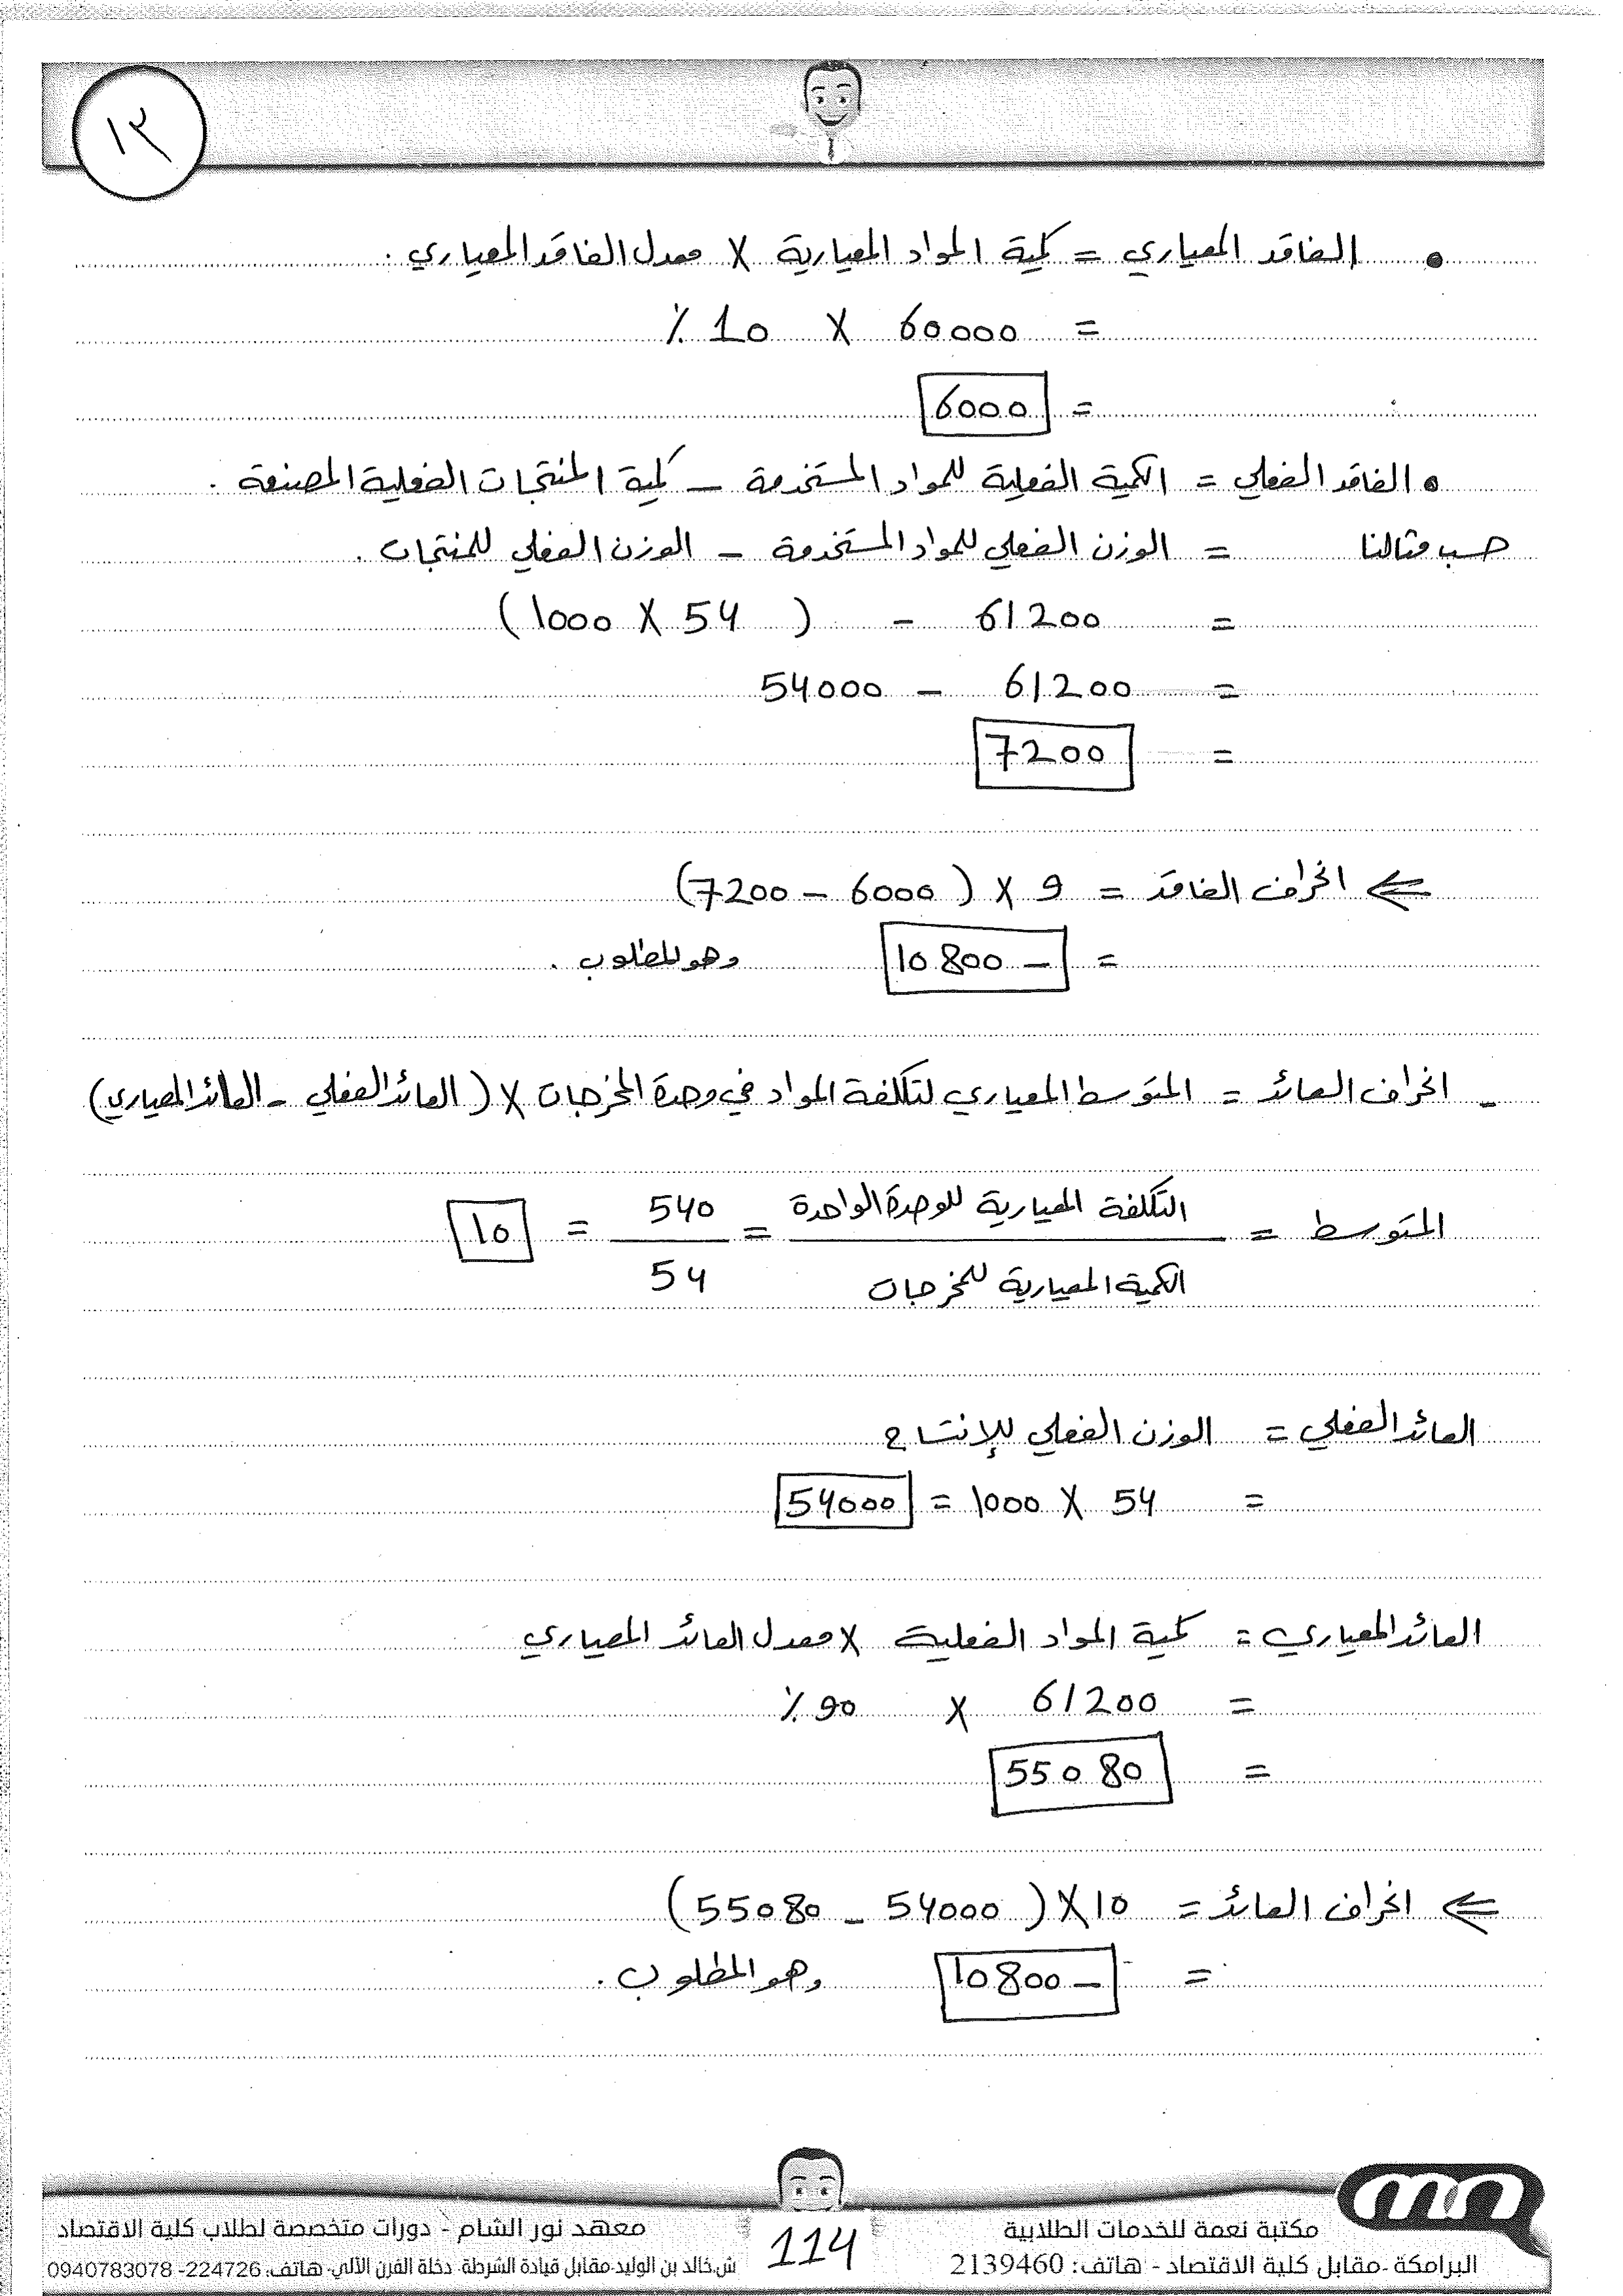 ١٢
• الفاقد المعياري = كمية المواد المعيارية × معدل الفاقد المعياري .
= 60000 × 10 ٪
= 6000
• الفاقد الفعلي = الكمية الفعلية للمواد المستخدمة - كمية المنتجات الفعلية المصنعة .
حسب مثالنا = الوزن الفعلي للمواد المستخدمة - الوزن الفعلي للمنتجات .
= 61200 - ( 54 × 1000 )
= 61200 - 54000
= 7200
⇐ انحراف الفاقد = 9 × ( 6000 - 7200 )
= - 10800 وهو المطلوب .
- انحراف العائد = المتوسط المعياري لتكلفة المواد في وحدة المخرجات × ( العائد الفعلي - العائد المعياري )
المتوسط = التكلفة المعيارية للوحدة الواحدة = 540 = 10
الكمية المعيارية للمخرجات 54
العائد الفعلي = الوزن الفعلي للإنتاج
= 54 × 1000 = 54000
العائد المعياري = كمية المواد الفعلية × معدل العائد المعياري
= 61200 × 90 ٪
= 55080
⇐ انحراف العائد = 10 × ( 54000 - 55080 )
= - 10800 وهو المطلوب .
مكتبة نعمة للخدمات الطلابية
البرامكة -مقابل كلية الاقتصاد - هاتف: 2139460
114
معهد نور الشام - دورات متخصصة لطلاب كلية الاقتصاد
ش.خالد بن الوليد-مقابل قيادة الشرطة- دخلة الفرن الآلي- هاتف: 224726- 0940783078